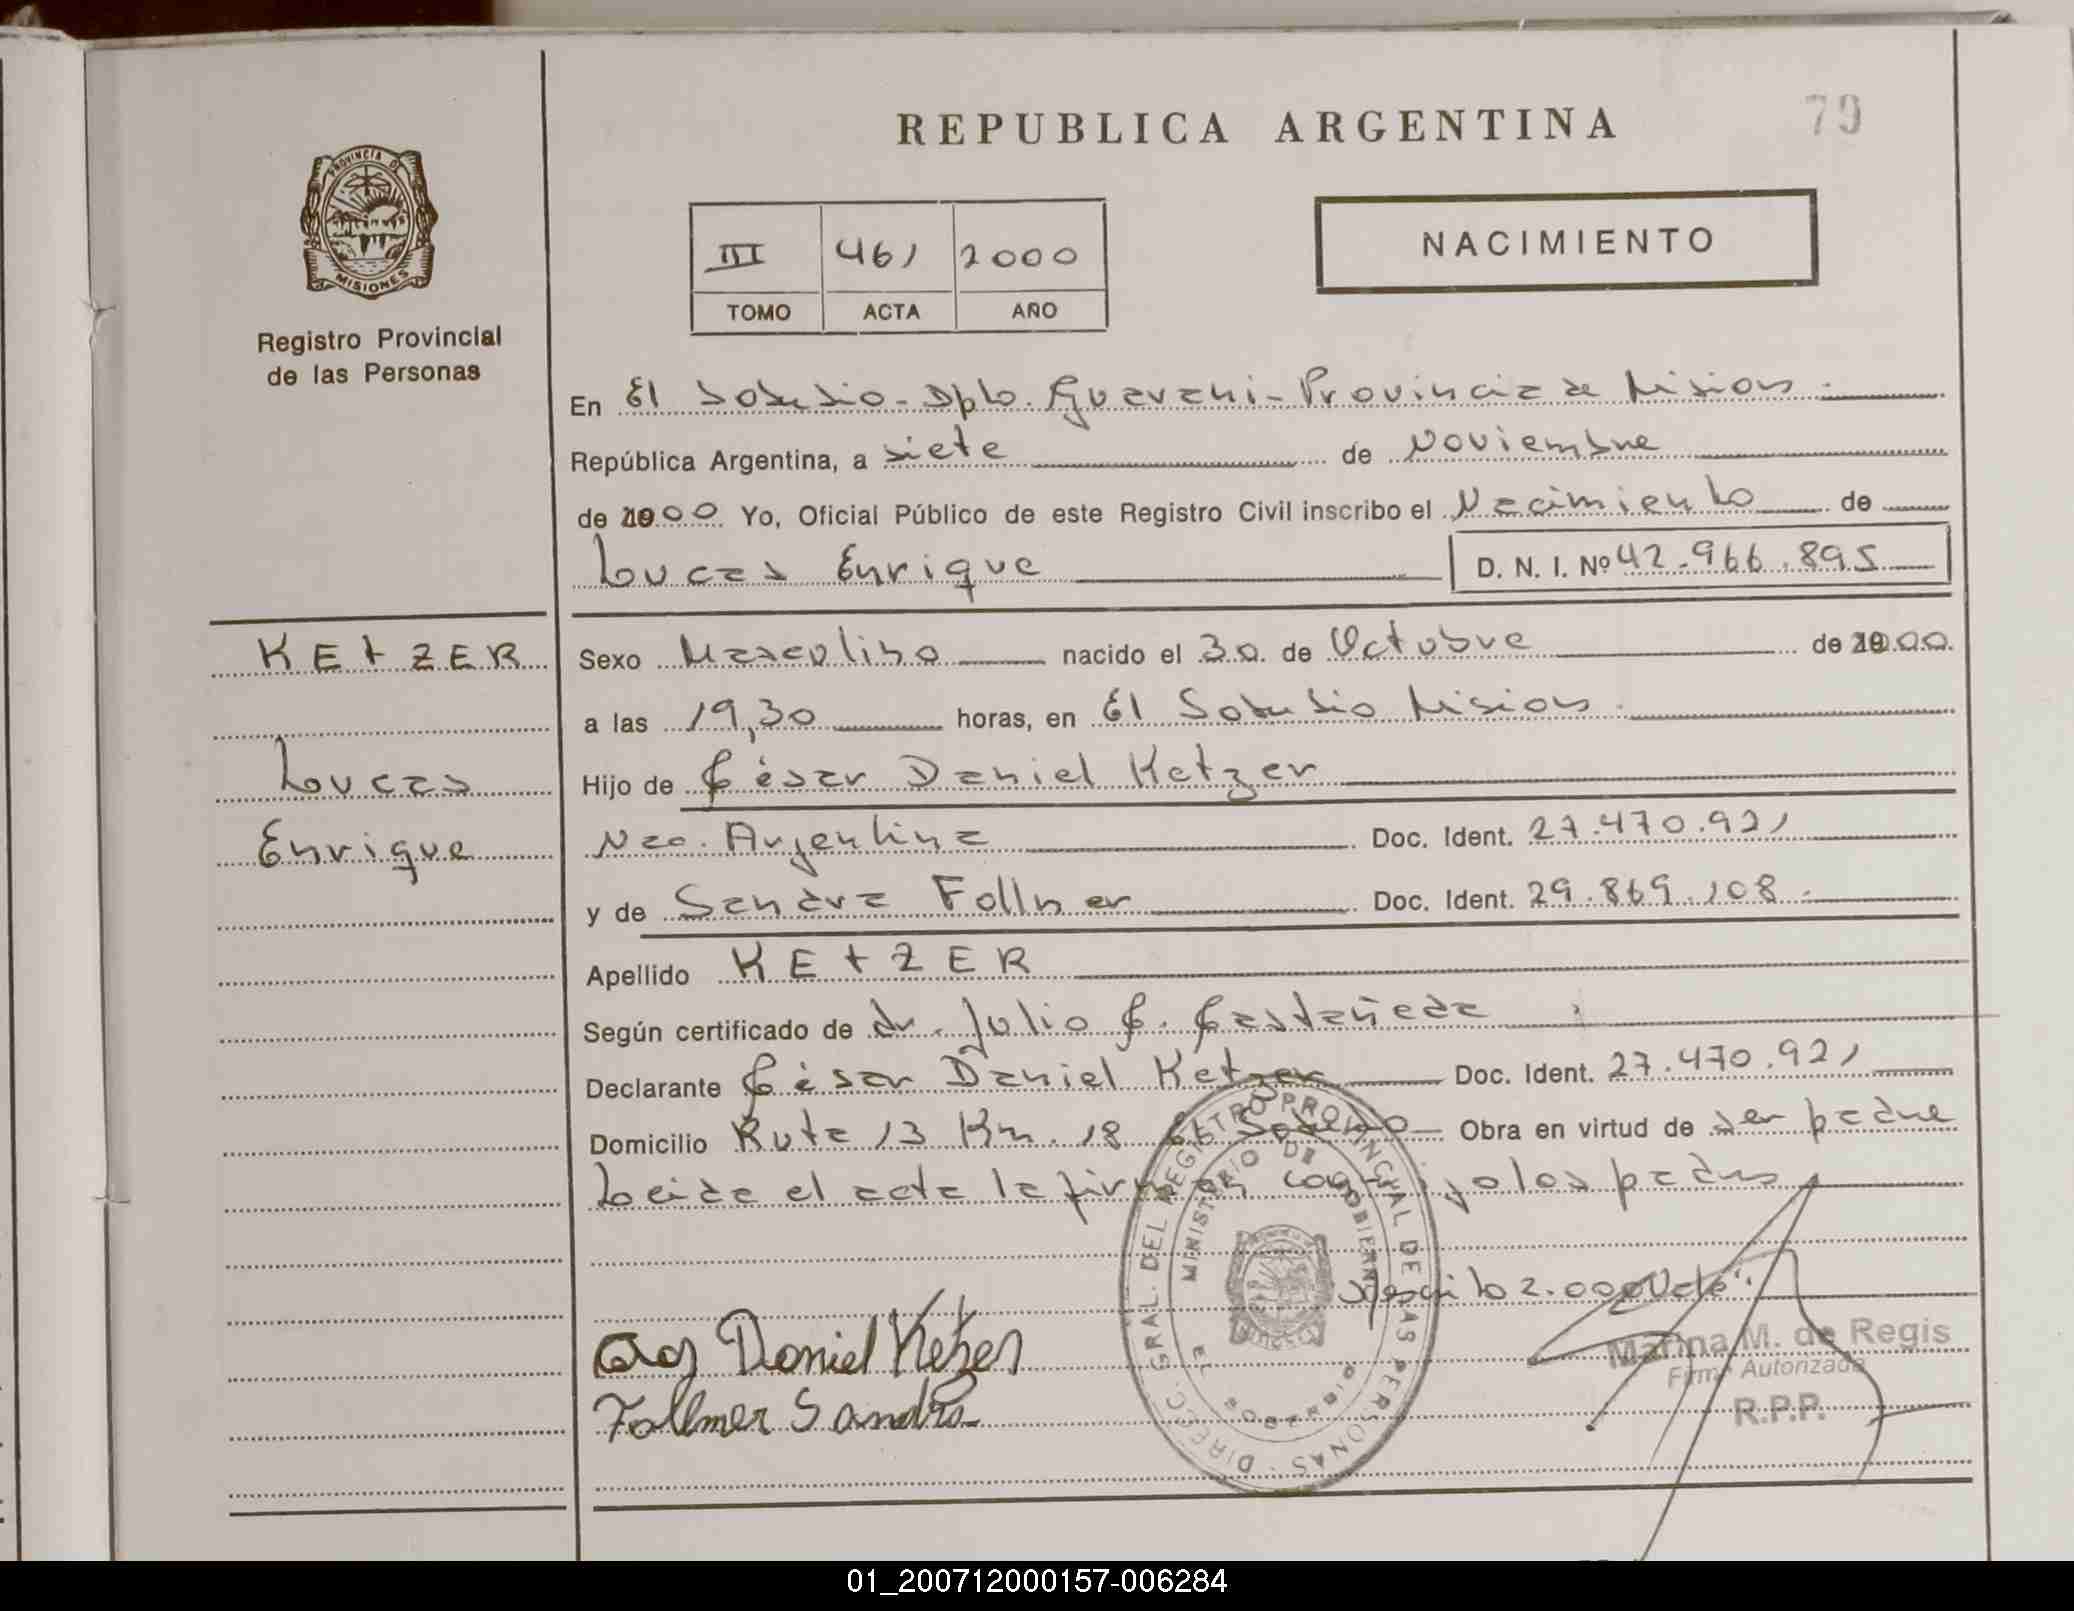 REPUBLICA ARGENTINA
79
PROVINCIA DE
MISIONES
Registro Provincial
de las Personas
III 461 2000
TOMO ACTA AÑO
NACIMIENTO
En El Soberbio - Dpto. Guarani - Provincia de Misiones
República Argentina, a siete de Noviembre
de 2000 Yo, Oficial Público de este Registro Civil inscribo el Nacimiento de
Lucas Enrique D. N. I. Nº 42.966.895
KETZER
Lucas
Enrique
Sexo Masculino nacido el 30 de Octubre de 2000
a las 19,30 horas, en El Soberbio Misiones
Hijo de César Daniel Ketzer
Nac. Argentina Doc. Ident. 27.470.921
y de Sandra Follner Doc. Ident. 29.869.108
Apellido KETZER
Según certificado de dr. Julio C. Castañeda
Declarante César Daniel Ketzer Doc. Ident. 27.470.921
Domicilio Ruta 13 Km. 18 El Soberbio Obra en virtud de ser padre
Leida el acta la firman conmigo los padres
2.000 Vale
Daniel Ketzer
Follmer Sandra
DIRECC. GRAL. DEL REGISTRO PROVINCIAL DE LAS PERSONAS
MINISTERIO DE GOBIERNO
EL SOBERBIO
Marina M. de Regis
Firma Autorizada
R.P.P.
01_200712000157-006284